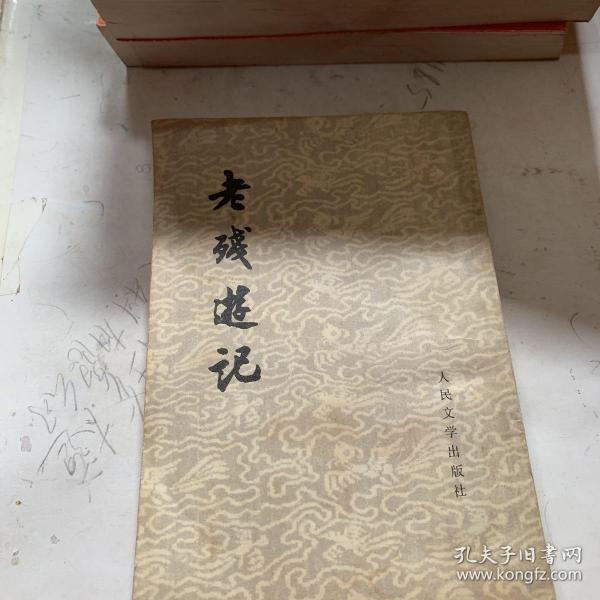 老残遊记
人民文学出版社
孔夫子旧书网
www.kongfz.com